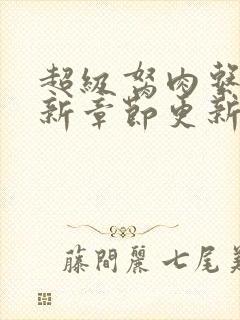 超級胬肉
新章節更新
藤間麗 七尾美